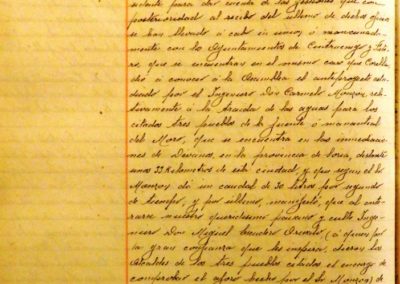 sidente para dar cuenta de las gestiones que con
posterioridad al recibo del último de dichos oficios
se han llevado á cabo en union ó mancomunada-
mente con los Ayuntamientos de Cintruenigo y Fite-
ro, que se encuentran en el mismo caso que Corella
dió á conocer á la Asamblea el anteproyecto estu-
diado por el Ingeniero Don Carmelo Monzon, re-
lativamente á la traida de las aguas para los
citados tres pueblos de la fuente ó manantial
del Moro, que se encuentra en las inmediacio-
nes de Devanos, en la provincia de Soria, distante
unos 33 Kilometros de esta ciudad, y que segun el Sr
Monzon dá un caudal de 30 litros por segundo
de tiempo, y por último, manifestó, que al ente-
rarse nuestro queridisimo paisano y culto Inge-
niero Don Miguel (á quien por
la gran confianza que les inspira, dieron los
Alcaldes de los tres pueblos citados el encargo de
comprobar el aforo hecho por el Sr Monzon) de